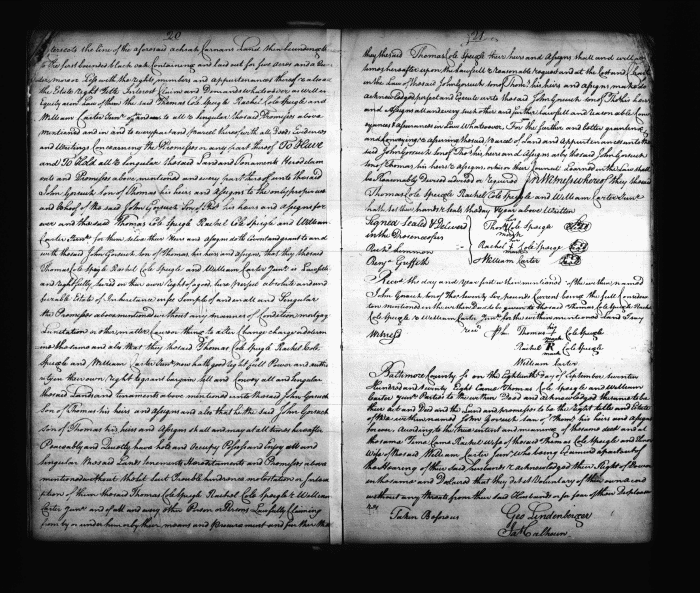 20
intersects the line of the aforesaid Carnans Land then bounding
to the first bounded black oak Containing and laid out for five acres and a
more or Less with the rights members and appurtenances thereto also
the Estate right title Interest Claim and Demand whatsoever as well in
Equity as in Law of them the said Thomas Cole Speigle Rachel Cole Speigle and
William Carter Junr of and unto all & Singular the said Premises above
mentioned and in and to every part and parcel thereof with all Deeds Evidences
and Writings Concerning the Premises or any part thereof To Have
and To Hold all & Singular the said Land and Tenements Hereditam
ents and Premises above mentioned and every part thereof unto the said
John Gorsuch son of Thomas his heirs and Assigns to the only proper use
and behoof of the said John Gorsuch son of Thos his heirs and Assigns for
ever and the said Thomas Cole Speigle Rachel Cole Speigle and William
Carter Junr for them selves their Heirs and assigns doth Covenant grant to and
with the said John Gorsuch son of Thomas his heirs and Assigns, that they the said
Thomas Cole Speigle Rachel Cole Speigle and William Carter Junr is Lawfully
and rightfully Seized in their own rights of a good, sure perfect absolute and in
heritable Estate of Inheritance in fee Simple of and in all and Singular
the Premises above mentioned without any manner of Condition, mortgage
Limitation or other matter Cause or thing to alter Change charge or determ
ine the same and also that they the said Thomas Cole Speigle Rachel Cole
Speigle and William Carter Junr now hath good right full Power and auth
ority in their own right to grant bargain Sell and Convey all and Singular
the said Lands and tenaments above mentioned unto the said John Gorsuch
son of Thomas his heirs and Assigns and also that he the said John Gorsuch
son of Thomas his heirs and Assigns Shall and may at all times hereafter
Peaceably and Quietly have hold and Occupy Possess and Enjoy all and
Singular the said Lands Tenements Hereditaments and Premises above
mentioned without the let Suit Trouble hindrance molestation or Inter
ruptions of them the said Thomas Cole Speigle Rachel Cole Speigle & William
Carter Junr and of all and every other Person or Persons Lawfully Claiming
from by or under him or by their means and procurement and further that
21
they the said Thomas Cole Speigle their heirs and Assigns shall and will
times hereafter upon the Lawfull & reasonable request and at the Cost and
in the Law of the said John Gorsuch son of Thos his heirs and Assigns, make do
acknowledge perfect and Execute unto the said John Gorsuch son of Thos his heirs
and Assigns all and every such other and further Lawfull and reasonable Conv
eyances & assurances in Law Whatsoever, For the further and better granting
and Conveying & assuring the said parcel of Land and appurtenances unto the
said John Gorsuch son of Thos his heirs and Assigns as by the said John Gorsuch
son of Thomas, his heirs & assigns or his or their Council Learned in the Law shall
be Reasonably Devised advised or required In Witness whereof they the said
Thomas Cole Speigle Rachel Cole Speigle and William Carter Junr
hath set their hands & Seals the day & year above Written
Signed Sealed & Delivered
in the Presence of us
Richd Lemmon
Benjn Griffeth
his
Thos Cole Speigle Seal
mark
Rachel Cole Speigle Seal
mark
William Carter Seal
Recd the day and year first within mentioned of the within named
John Gorsuch son of Thos twenty five pounds Current being the full Consider
ation mentioned in the within Deed to be given to the said Thomas Cole Speigle Rachel
Cole Speigle & William Carter Junr for the within mentioned Land I say
Witness
his
Thomas Cole Speigle
mark
Rachel R Cole Speigle
mark
William Carter
Baltimore County ss on the Eighteenth day of September Seventeen
Hundred and Seventy Eight Came Thomas Cole Speigle and William
Carter Junr Parties to the within Deed and acknowledged the same to be
their act and Deed and the Land and premises to be the Right title and Estate
of the within named John Gorsuch son of Thomas his heirs and Assigns
forever According to the true intent and meaning of the same deed and at
the same Time Came Rachel Wife of the said Thomas Cole Speigle and
Wife of the said William Carter Junr Who being Examined apart out of
the Hearing of their said husbands & acknowledged their Right of Dower
in the same and Declared that they did it Voluntary of their own accord
without any threats from their said Husbands or for fear of their Displeasure
Taken Before us
Geo Lindenberger
Jas Calhoun